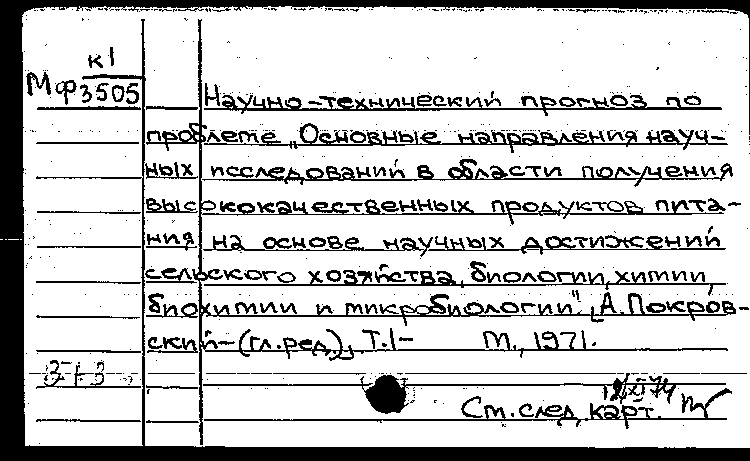 к1
Мф3505
Научно-технический прогноз по
проблеме „Основные направления науч-
ных исследований в области получения
высококачественных продуктов пита-
ния на основе научных достижений
сельского хозяйства, биологии, химии,
биохимии и микробиологии". [А. Покров-
ский-(гл.ред.)], Т.1- М., 1971.
См. след. карт.